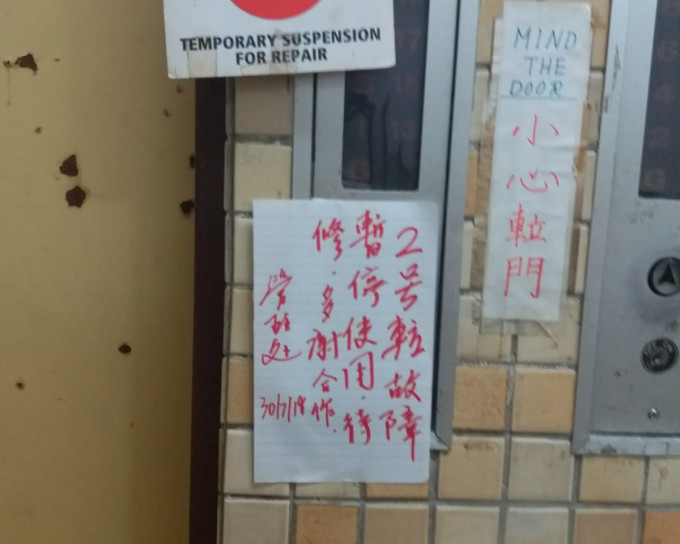 TEMPORARY SUSPENSION
FOR REPAIR
MIND
THE
DOOR
小心䢂門
2号䢂故障
暫停使用·待
修·多謝合作.
管理处
30/7/18